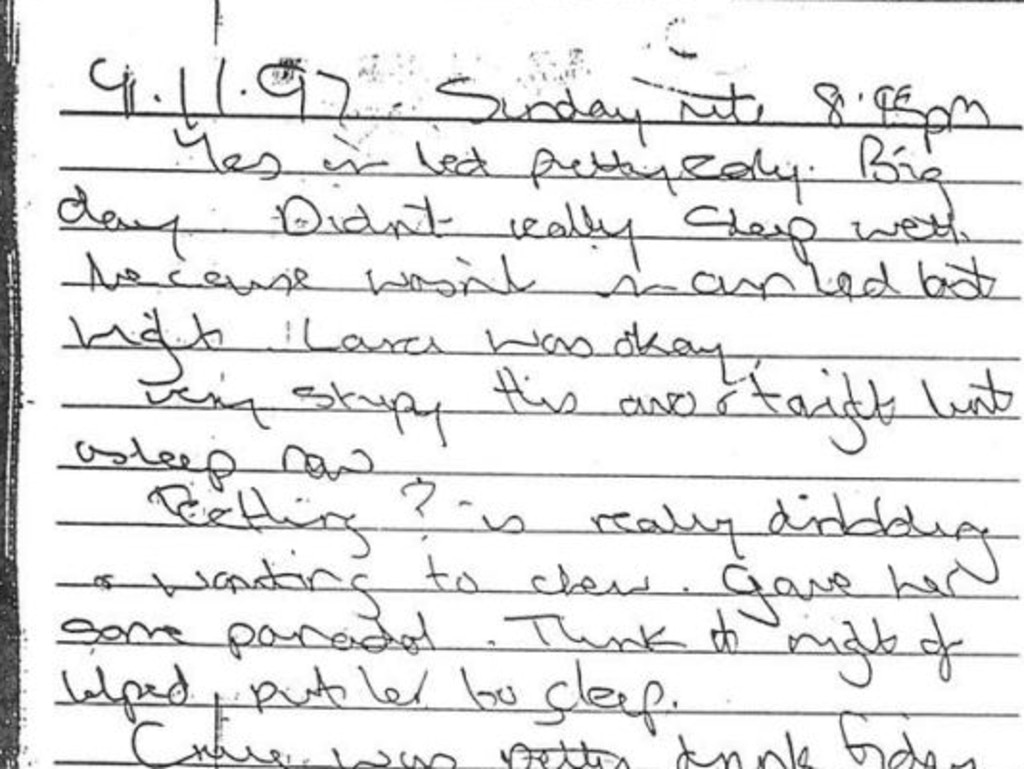 9.11.97 Sunday nite 8:45pm
Yes in bed pretty early. Big
day. Didn't really sleep well
because wasn't in our bed last
night. Lara was okay
very sleepy this arvo & tonight but
asleep now
Teething? is really dribbling
& wanting to chew. Gave her
some panadol. Think it might of
helped, put her to sleep.
was pretty drunk Friday